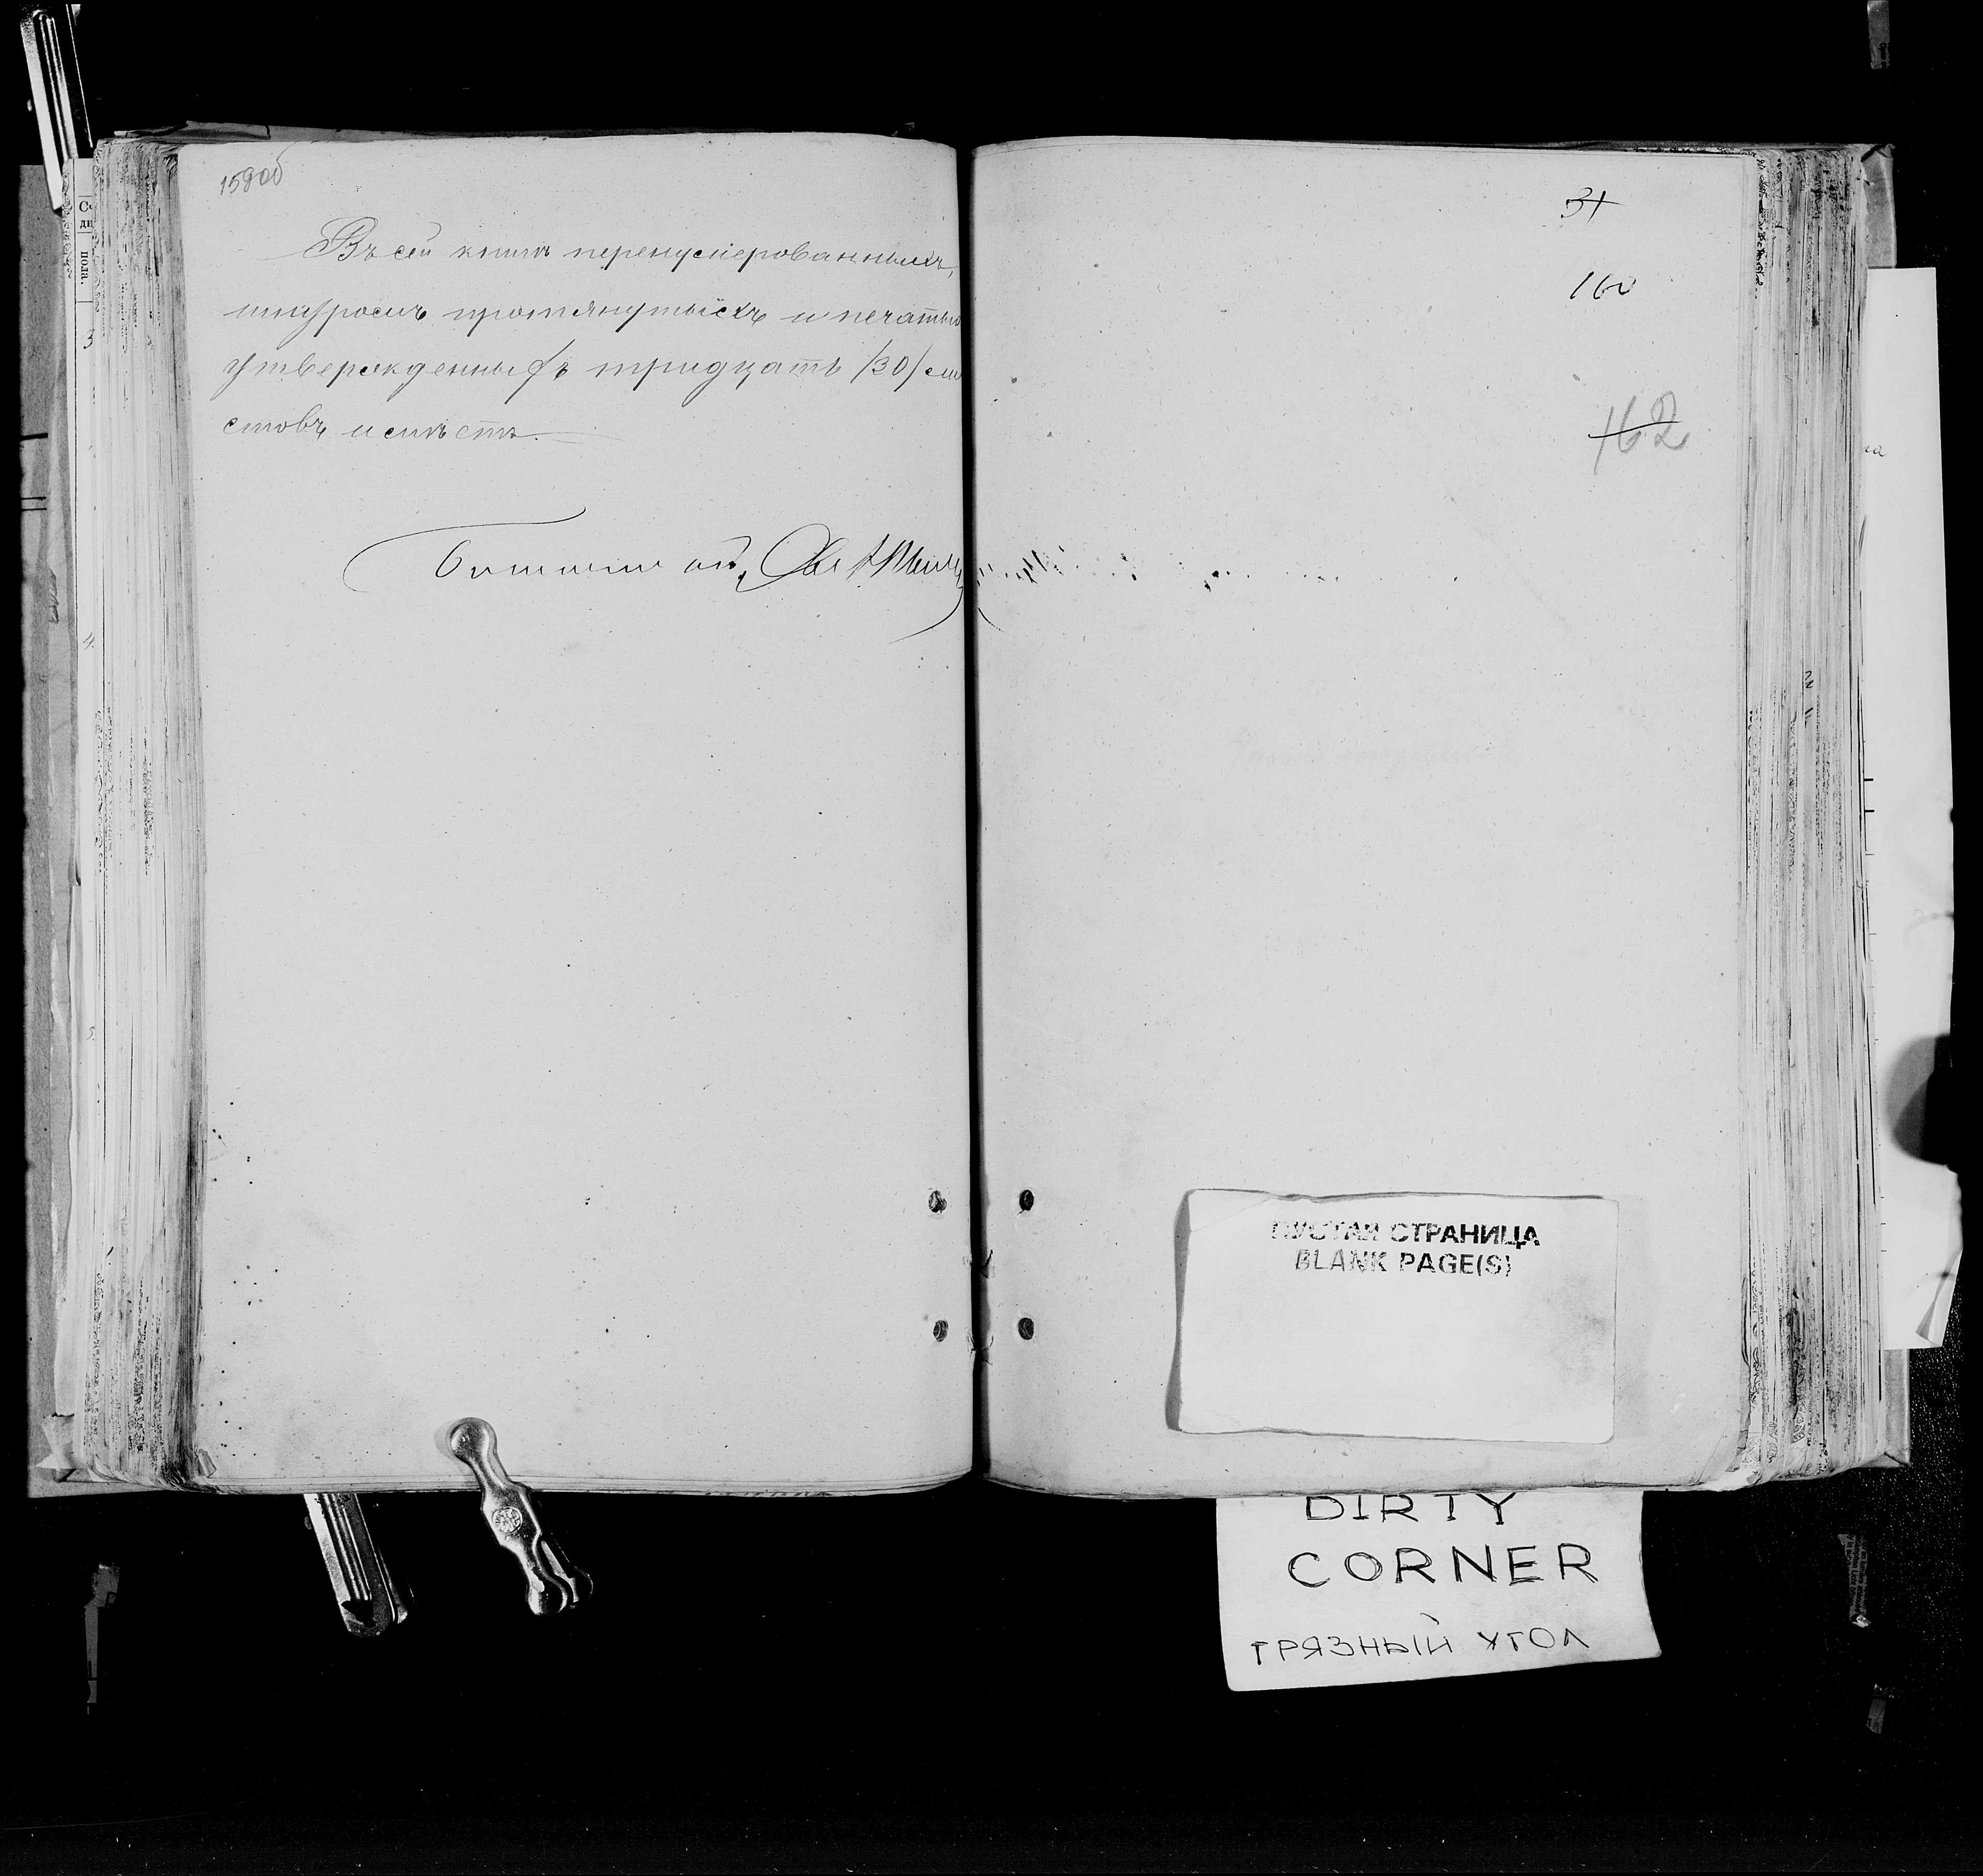 159об
Въ сей книгѣ перенумерованныхъ,
шнуромъ протянутыхъ и печатью
утвержденныхъ тридцать /30/ ли
стовъ
31
160
162
ПУСТАЯ СТРАНИЦА
BLANK PAGE(S)
DIRTY
CORNER
ГРЯЗНЫЙ УГОЛ